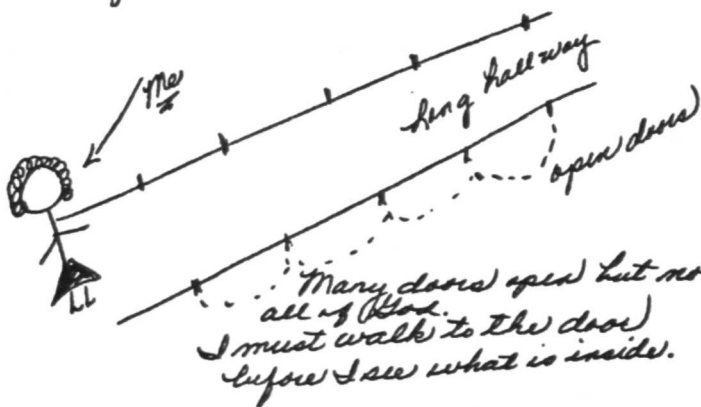 Me
Long hallway
open doors
Many doors open but no
all of God.
I must walk to the door
before I see what is inside.